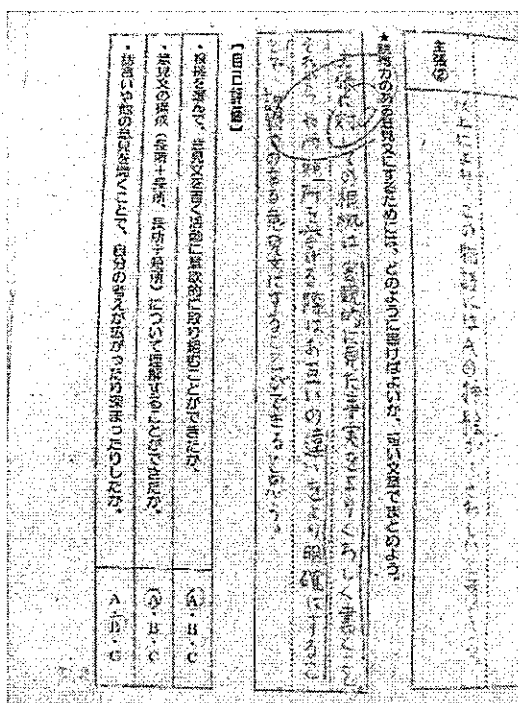 主張の
以上により、この物語にはAの
★説得力のある意見文にするためには、どのように書けばよいか、短い文章でまとめよう。
主張に対しての根拠は客観的に見た事実をよりくわしく書くこと
長所短所を挙げる際はお互いの違いをより明確にするこ
とで、説得力のある意見文にすることができると思う。
【自己評価】
・投稿を選んで、意見文を書く活動に意欲的に取り組むことができたか。 A・B・C
・意見文の構成(長所+長所、長所+短所)について理解することができたか。 A・B・C
・話合いや他の意見を聞くことで、自分の考えが広がったり深まったりしたか。 A・B・C